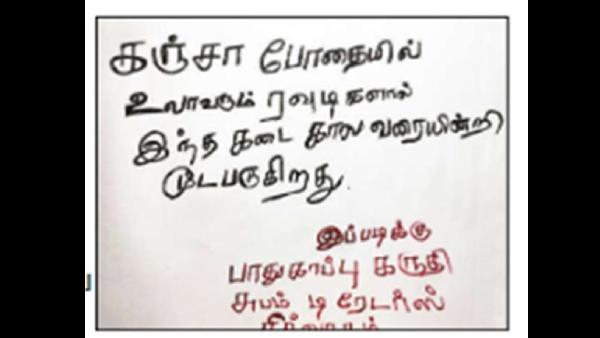 கஞ்சா போதையில்
உலாவரும் ரவுடிகளால்
இந்த கடை கால வரையின்றி
மூடபடுகிறது.
இப்படிக்கு
பாதுகாப்பு கருதி
சுபம் டிரேடர்ஸ்
நிர்வாகம்